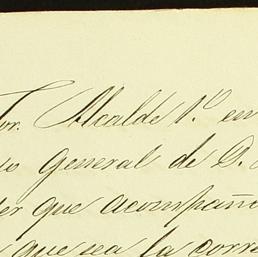 or. Alcalde 1.º en
io general de D.
er que acompaña
que sea la corre